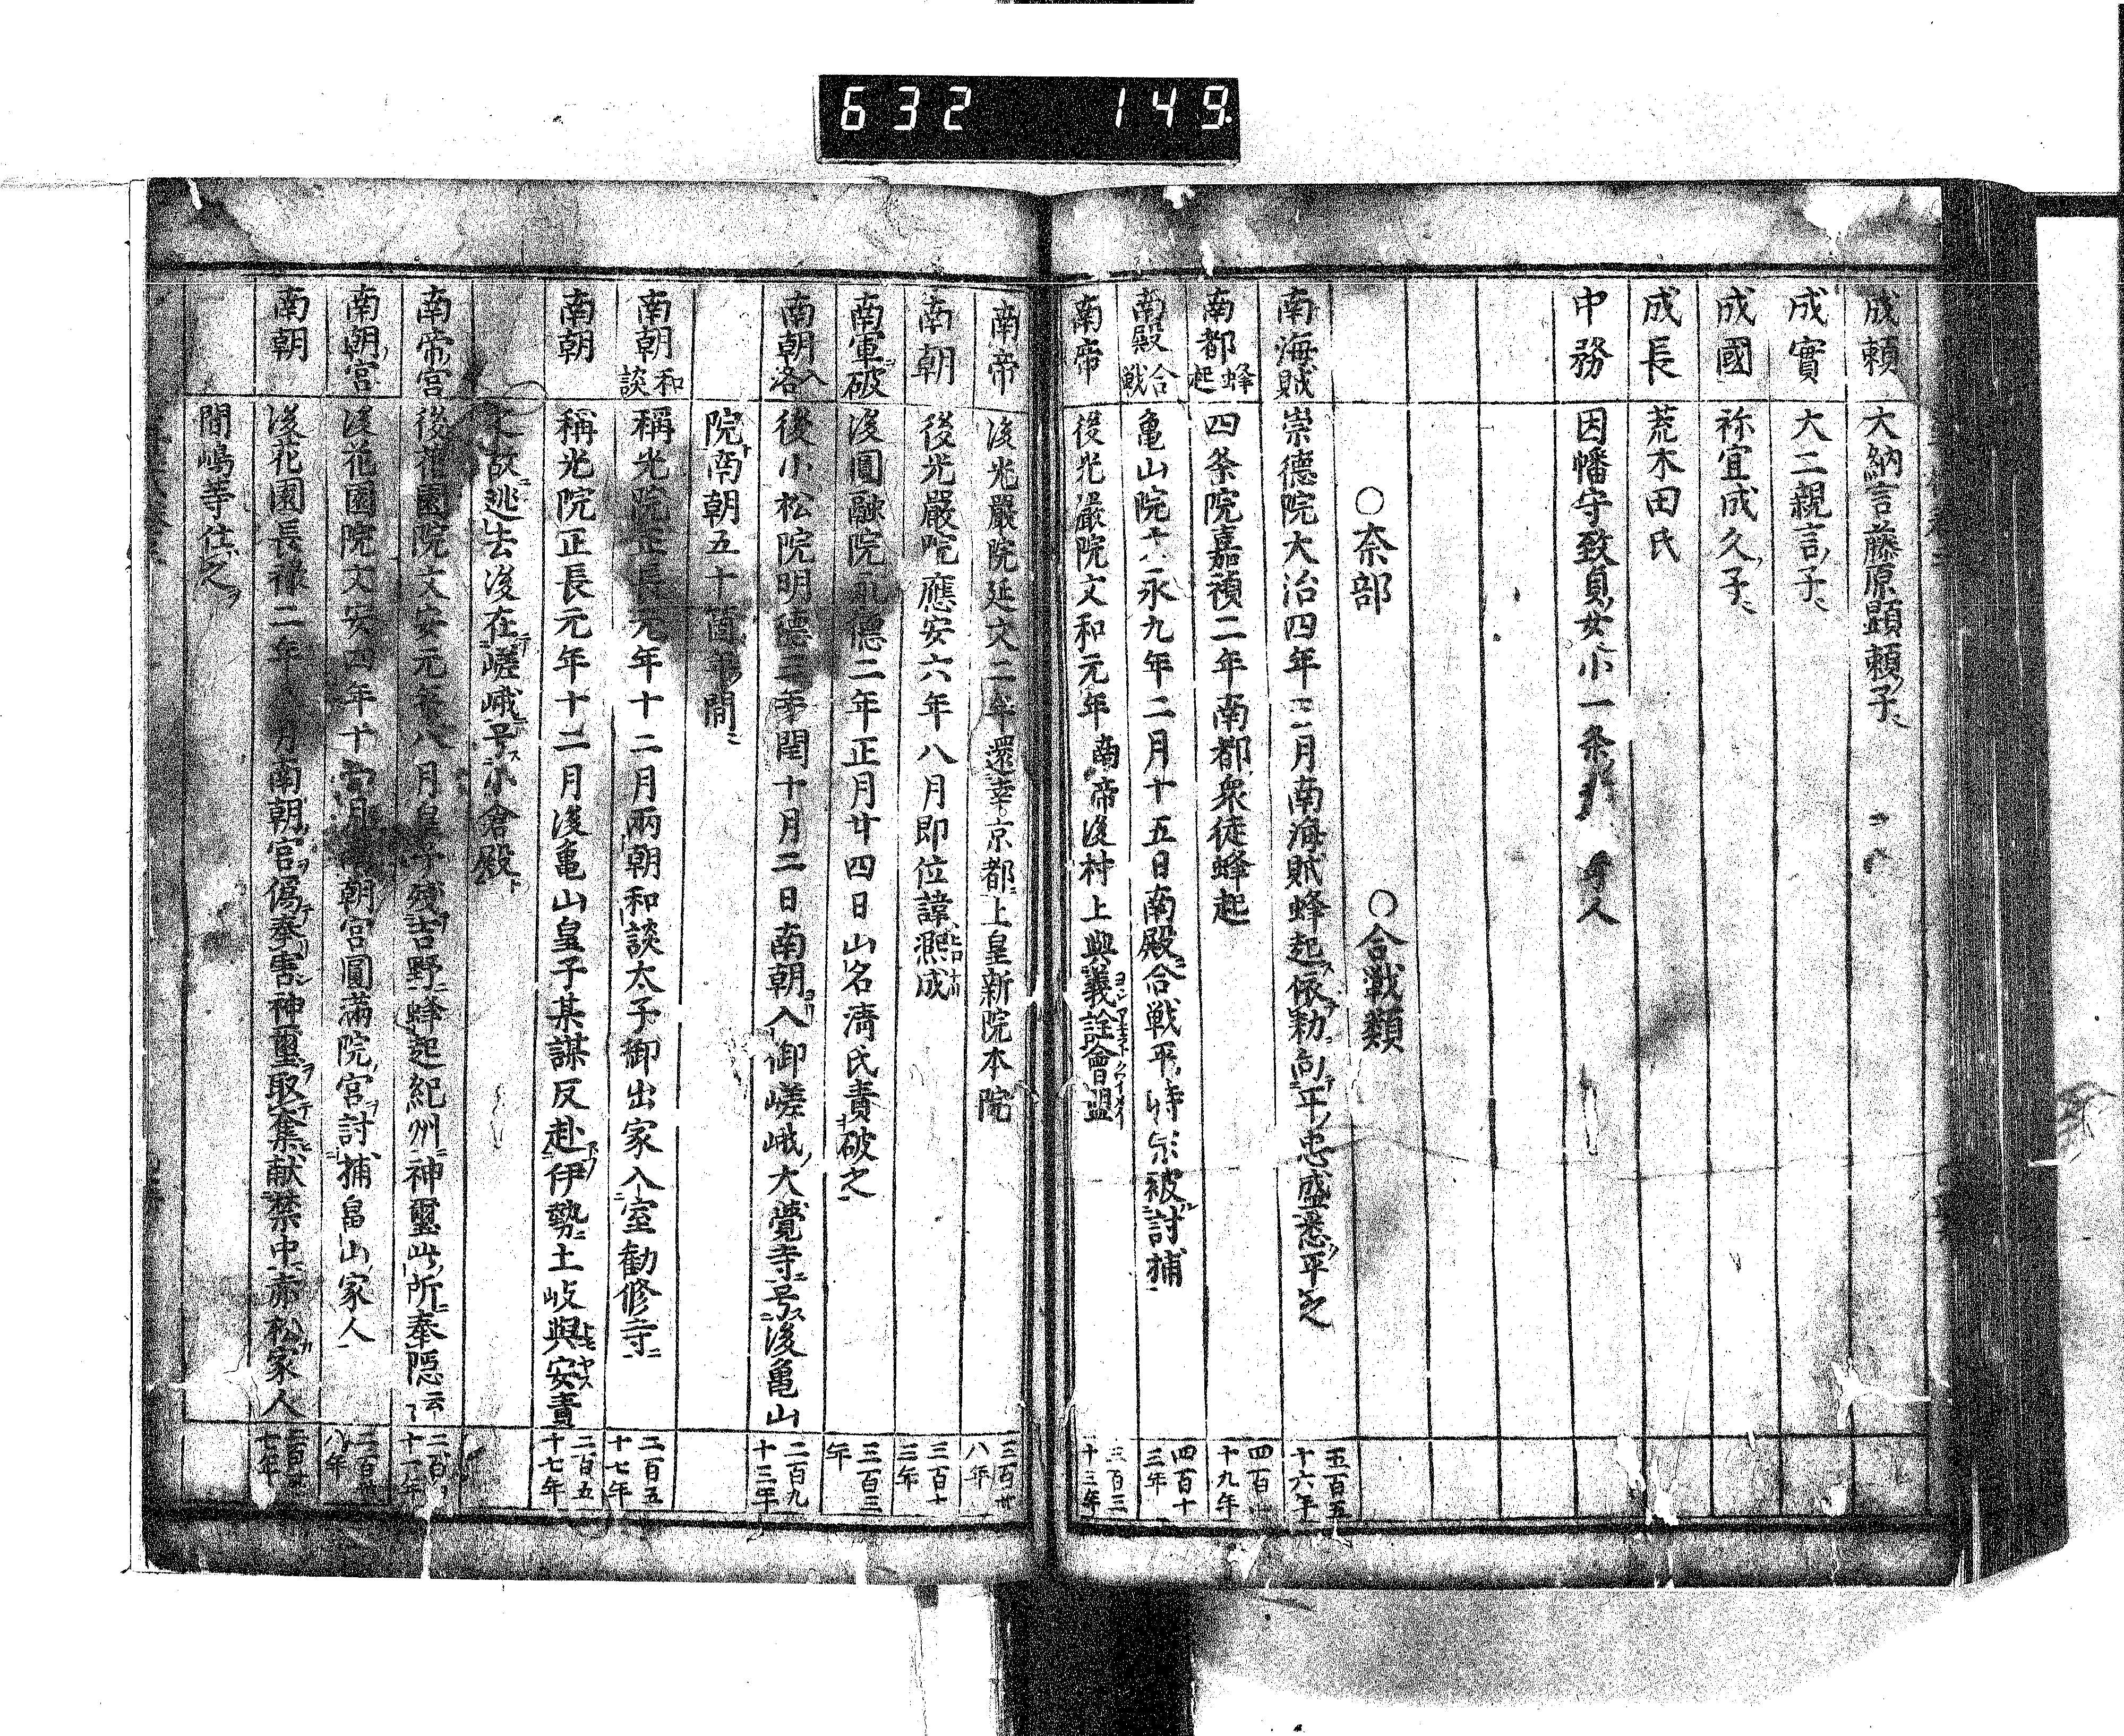 632 149.
成頼 大納言藤原顕頼子
成實 大二親言子
成國 祢宜成久子
成長 荒木田氏
中務 因幡守致貞女小一条
○奈部 ○合戦類
南海賊 崇徳院大治四年三月南海賊蜂起依勅向平忠盛悉平之 五百五十六年
南都蜂起 四条院嘉禎二年南都衆徒蜂起 四百 十九年
南殿合戦 亀山院文永九年二月十五日南殿合戦平時宗被討捕 四百十三年
南帝 後光嚴院文和元年南帝後村上與義詮會盟 三百三十三年
南帝 後光嚴院延文二年還幸京都上皇新院本院 三百廿八年
南朝 後光嚴院應安六年八月即位諱凞成 三百十三年
南軍破 後圓融院永德二年正月廿四日山名清氏責破之 三百三年
南朝入洛 後小松院明德三年閏十月二日南朝入御嵯峨大覺寺号後亀山 二百九十三年
院南朝五十箇年間
南朝和談 稱光院正長元年十二月兩朝和談太子御出家入室勧修寺 二百五十七年
南朝 稱光院正長元年十二月後亀山皇子某謀反赴伊勢土岐與安責 二百五十七年
之故逃去後在嵯峨号小倉殿
南帝宮 後花園院文安元年八月皇子残吉野蜂起紀州神璽此所奉隠云
南朝宮 後花園院文安四年十 月南朝宮圓滿院宮討捕畠山家人
南朝 後花園長禄二年 月南朝宮偽奉害神璽取奪集献禁中赤松家人
間嶋等住之